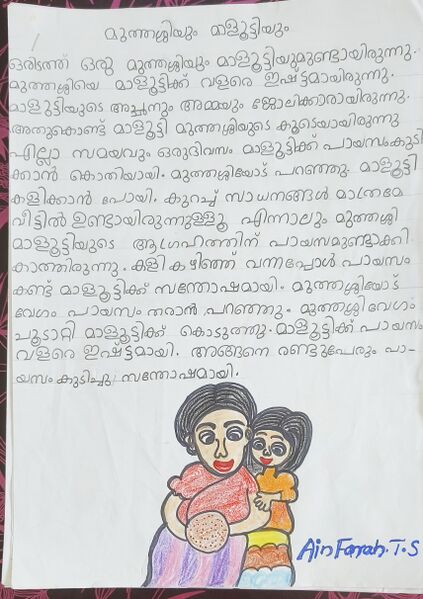 മുത്തശ്ശിയും മാളൂട്ടിയും
ഒരിടത്ത് ഒരു മുത്തശ്ശിയും മാളൂട്ടിയുമുണ്ടായിരുന്നു.
മുത്തശ്ശിയെ മാളൂട്ടിക്ക് വളരെ ഇഷ്ട്ടമായിരുന്നു.
മാളുട്ടിയുടെ അച്ഛനും അമ്മയും ജോലിക്കാരായിരുന്നു.
അതുകൊണ്ട് മാളൂട്ടി മുത്തശ്ശിയുടെ കൂടെയായിരുന്നു
എല്ലാ സമയവും ഒരുദിവസം മാളൂട്ടിക്ക് പായസംകുടി
ക്കാൻ കൊതിയായി. മുത്തശ്ശിയോട് പറഞ്ഞു. മാളൂട്ടി
കളിക്കാൻ പോയി. കുറച്ച് സാധനങ്ങൾ മാത്രമേ
വീട്ടിൽ ഉണ്ടായിരുന്നുള്ളൂ എന്നാലും മുത്തശ്ശി
മാളൂട്ടിയുടെ ആഗ്രഹത്തിന് പായസമുണ്ടാക്കി
കാത്തിരുന്നു. കളി കഴിഞ്ഞ് വന്നപ്പോൾ പായസം
കണ്ട് മാളൂട്ടിക്ക് സന്തോഷമായി. മുത്തശ്ശിയോട്
വേഗം പായസം തരാൻ പറഞ്ഞു. മുത്തശ്ശി വേഗം
ചൂടാറ്റി മാളൂട്ടിക്ക് കൊടുത്തു. മാളൂട്ടിക്ക് പായസം
വളരെ ഇഷ്ട്ടമായി. അങ്ങനെ രണ്ടുപേരും പാ-
യസം കുടിച്ചു സന്തോഷമായി.
Ain Farah.T.S